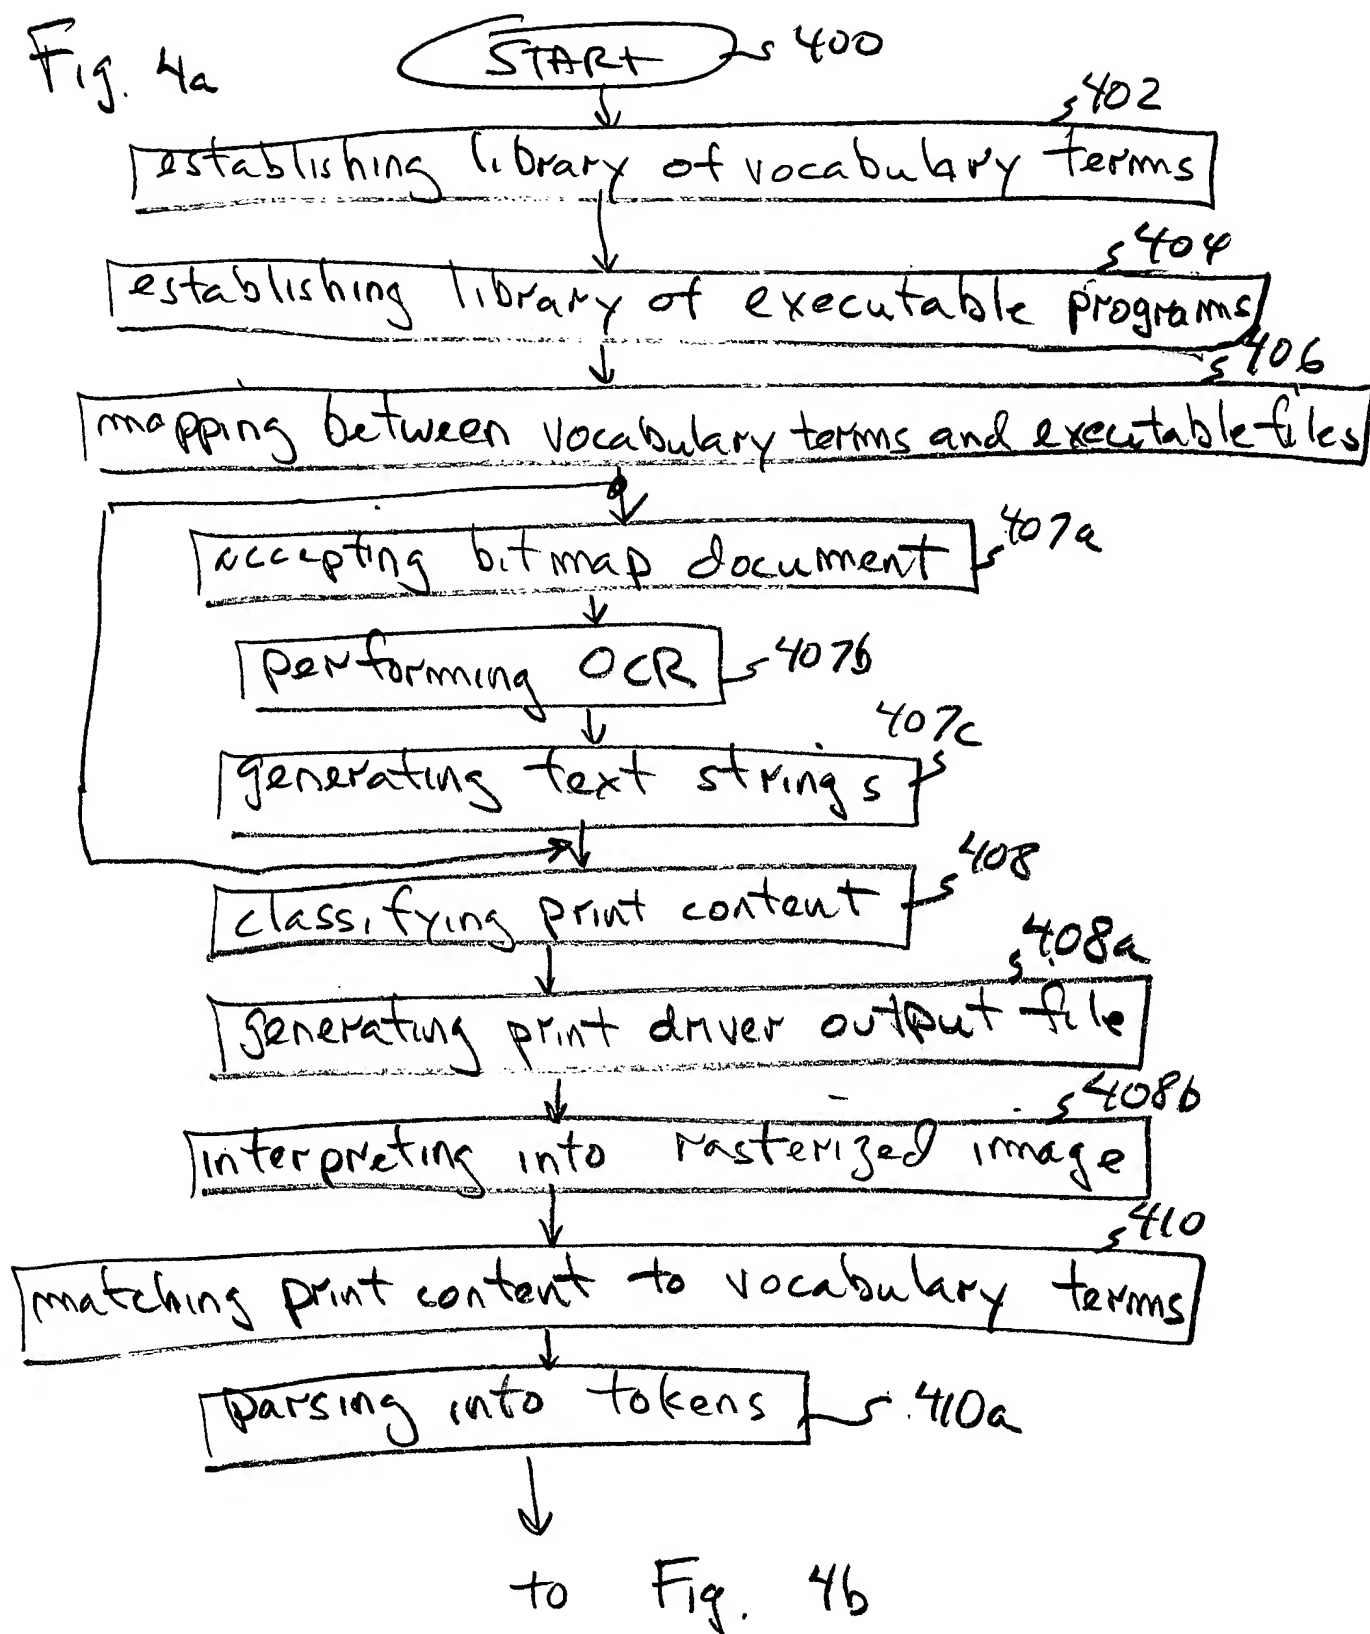 Fig. 4a
START 400
402
establishing library of vocabulary terms
404
establishing library of executable programs
406
mapping between vocabulary terms and executable files
accepting bitmap document 407a
performing OCR 407b
407c
generating text strings
408
classifying print content
408a
generating print driver output file
408b
interpreting into rasterized image
410
matching print content to vocabulary terms
parsing into tokens 410a
to Fig. 4b